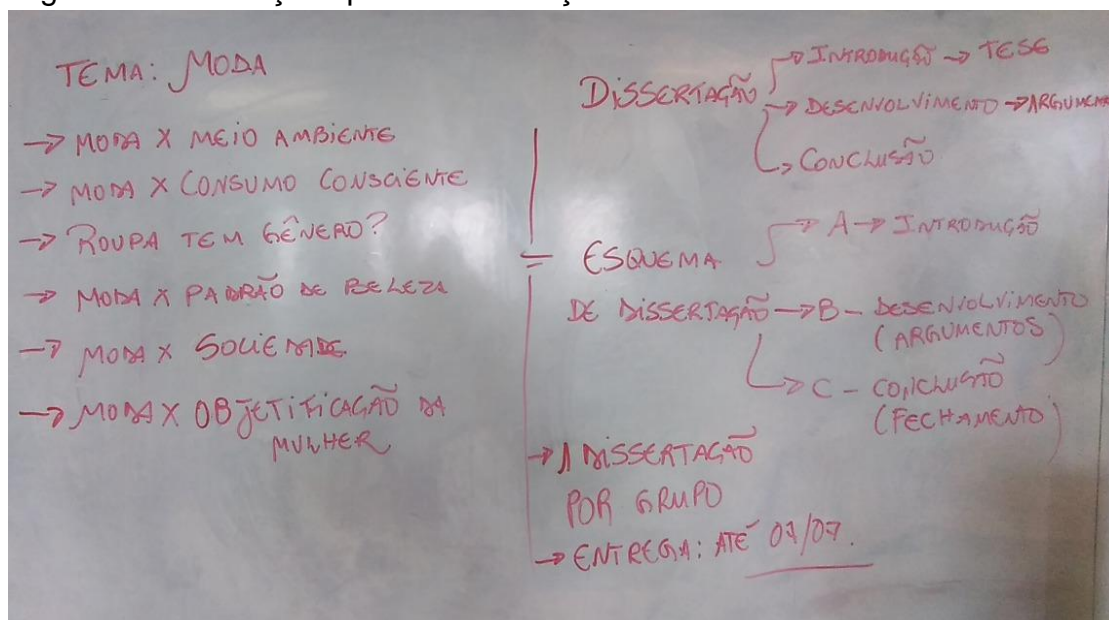 TEMA: MODA
→ MODA X MEIO AMBIENTE
→ MODA X CONSUMO CONSCIENTE
→ ROUPA TEM GÊNERO?
→ MODA X PADRÃO DE BELEZA
→ MODA X SOCIEDADE
→ MODA X OBJETIFICAÇÃO DA
MULHER
DISSERTAÇÃO
→ INTRODUÇÃO → TESE
→ DESENVOLVIMENTO → ARGUMEN
→ CONCLUSÃO
ESQUEMA
DE DISSERTAÇÃO
→ A → INTRODUÇÃO
→ B - DESENVOLVIMENTO
(ARGUMENTOS)
→ C - CONCLUSÃO
(FECHAMENTO)
→ 1 DISSERTAÇÃO
POR GRUPO
→ ENTREGA: ATÉ 07/07.